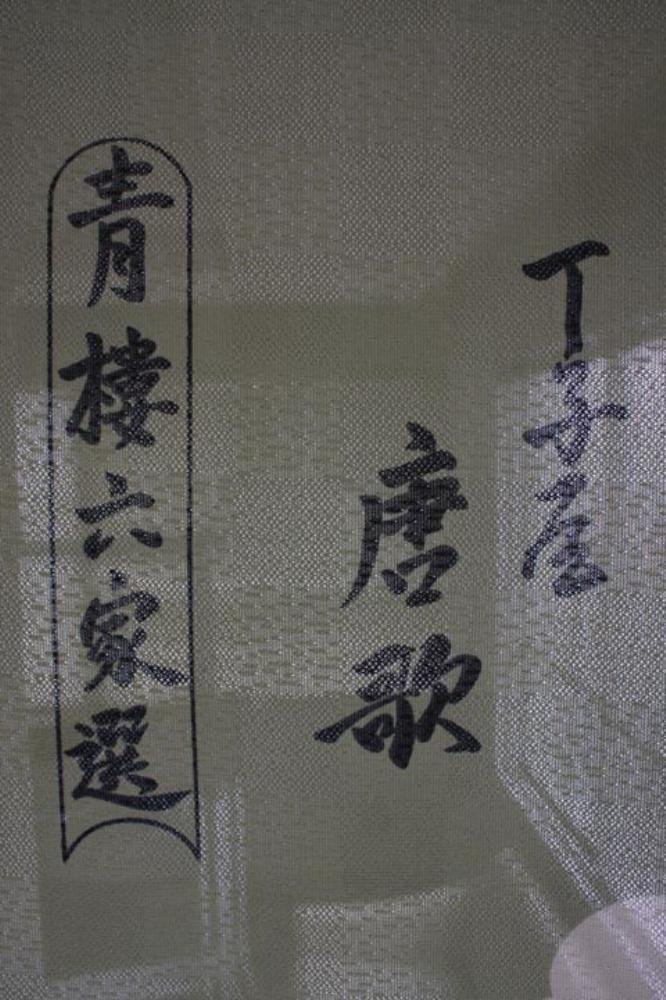 丁子屋
唐歌
青樓六家選